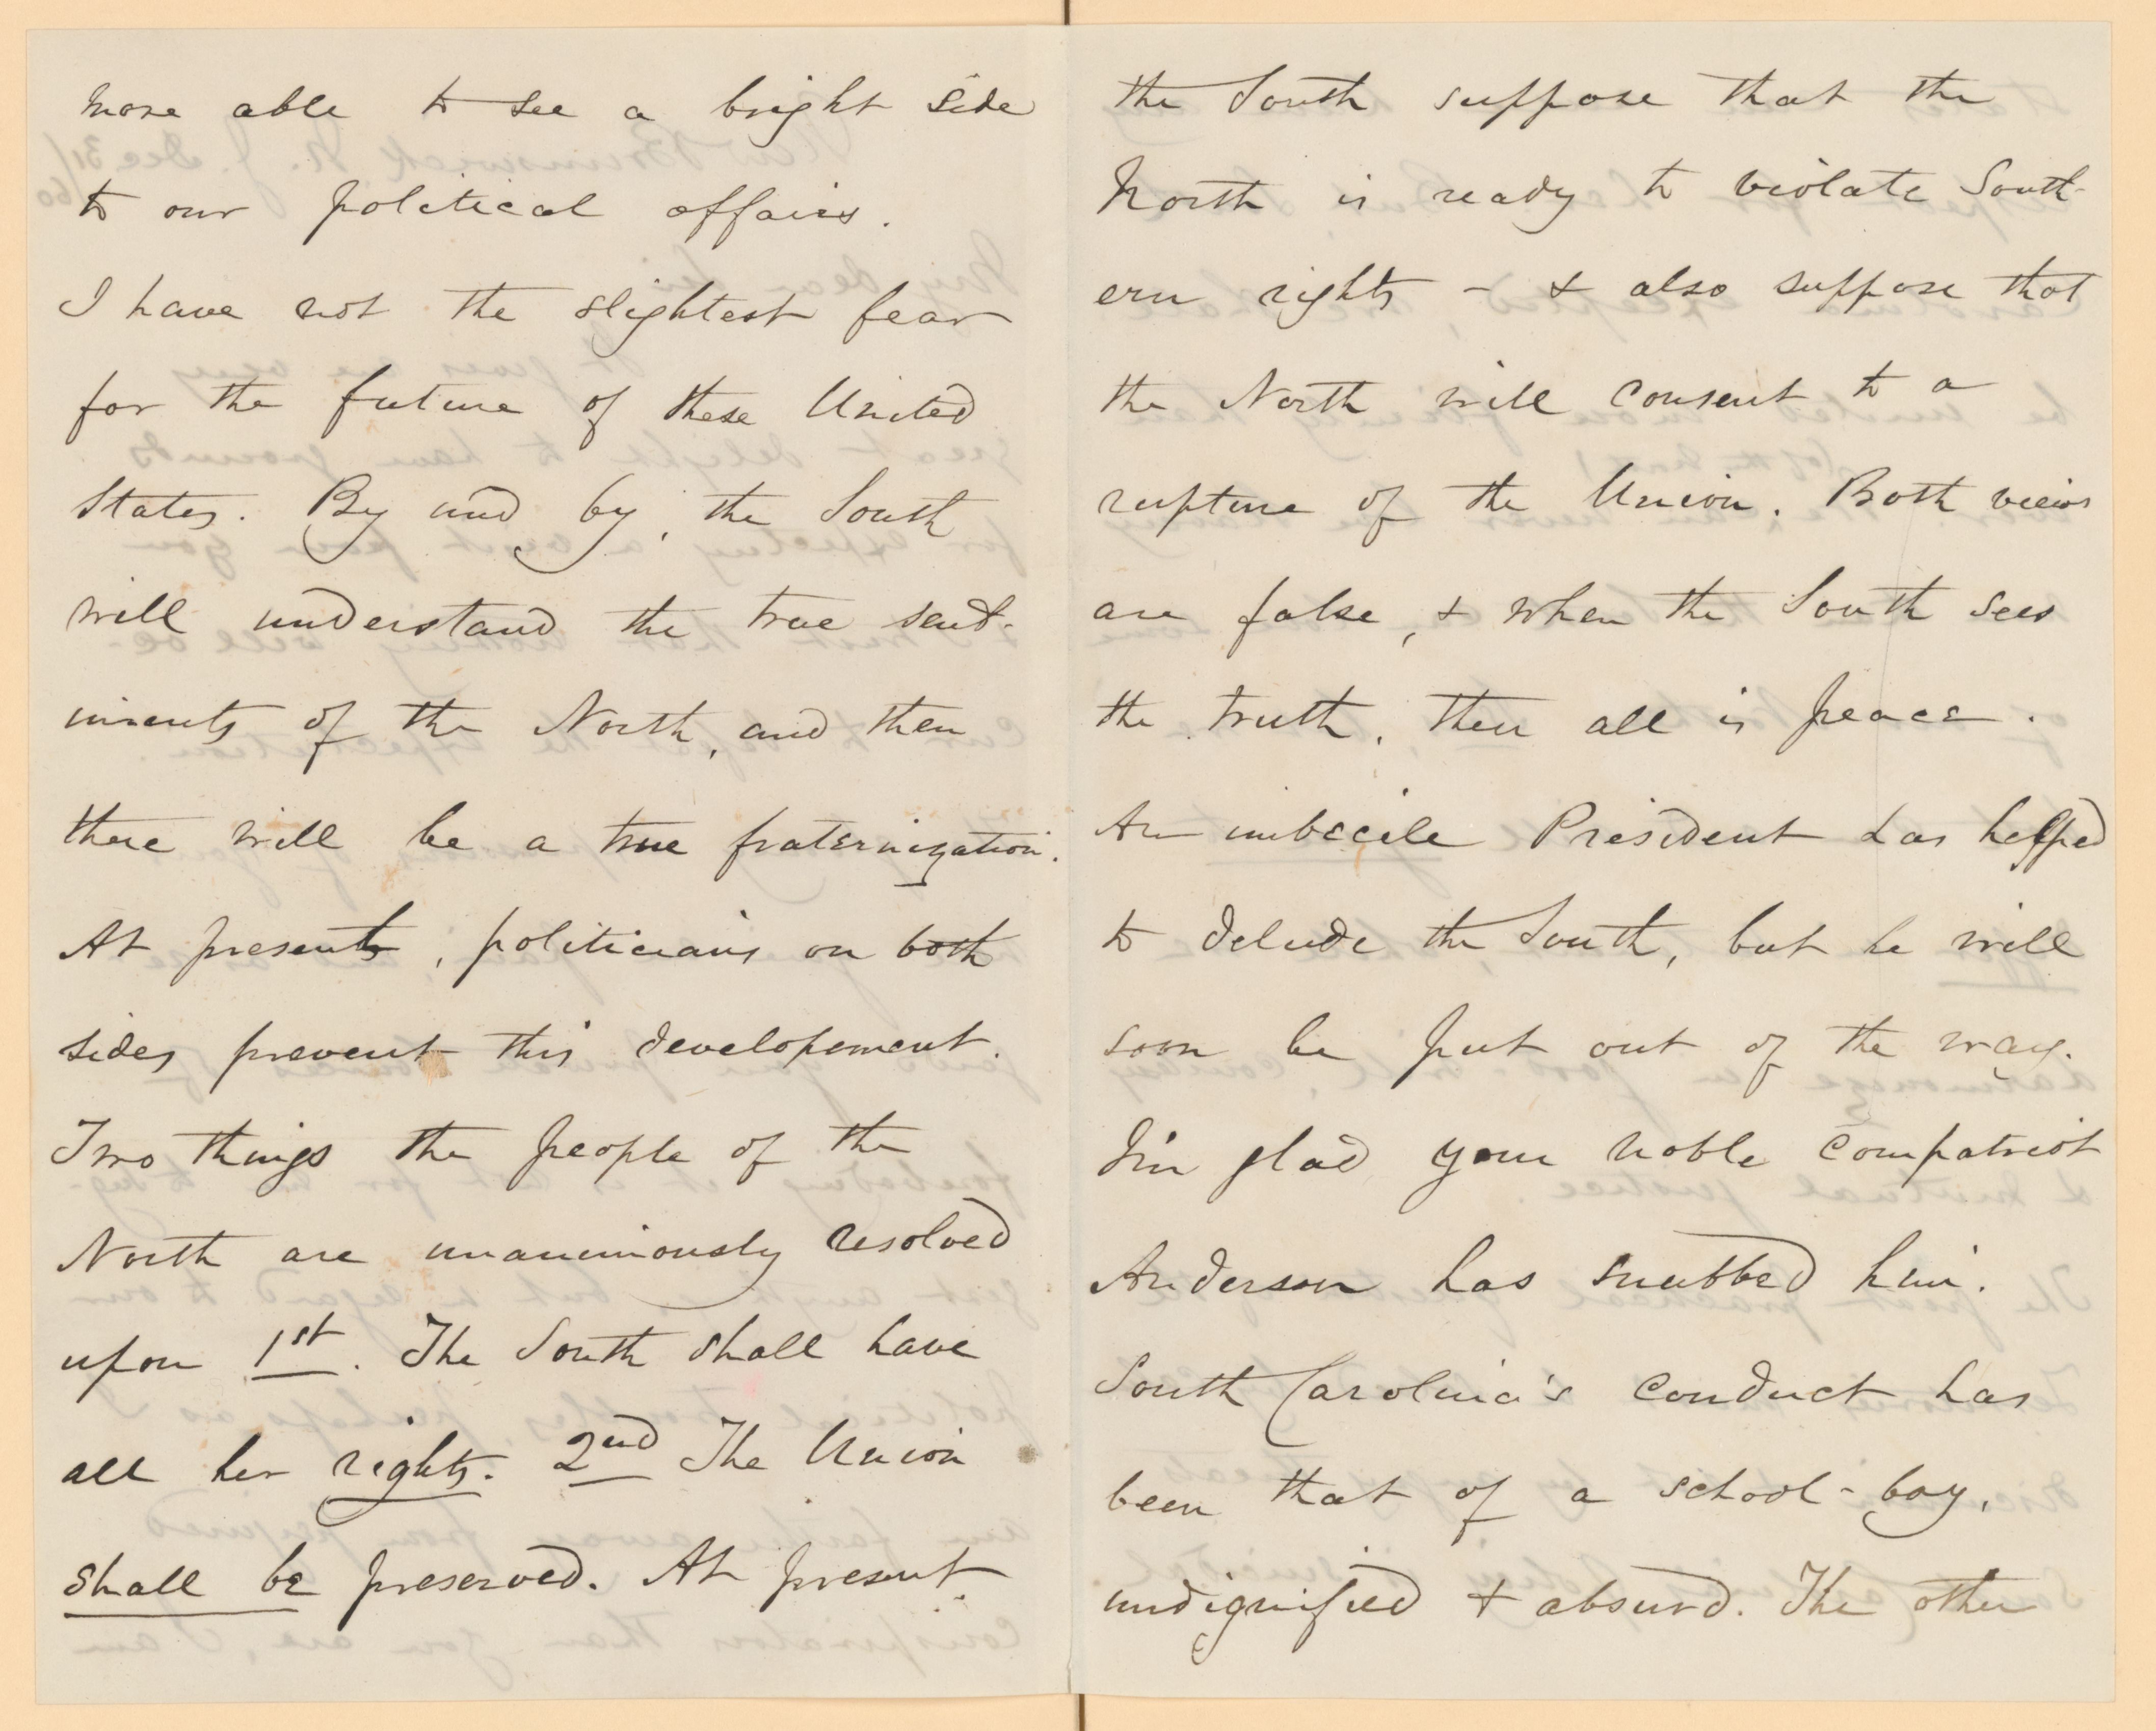 more able to see a bright side
to our political affairs.
I have not the slightest fear
for the future of these United
States. By and by, the South
will understand the true sent-
iments of the North, and then
there will be a true fraternization.
At present, politicians on both
sides prevent this developement.
Two things the people of the
North are unanimously resolved
upon 1st. The South shall have
all her rights. 2nd The Union
shall be preserved. At present
the South suppose that the
North is ready to violate South-
ern rights - & also suppose that
the North will consent to a
rupture of the Union. Both views
are false, & when the South sees
the truth, then all is peace.
An imbecile President has helped
to delude the South, but he will
soon be put out of the way.
I'm glad your noble compatriot
Anderson has snubbed him.
South Carolina's conduct has
been that of a school-boy,
undignified & absurd. The other